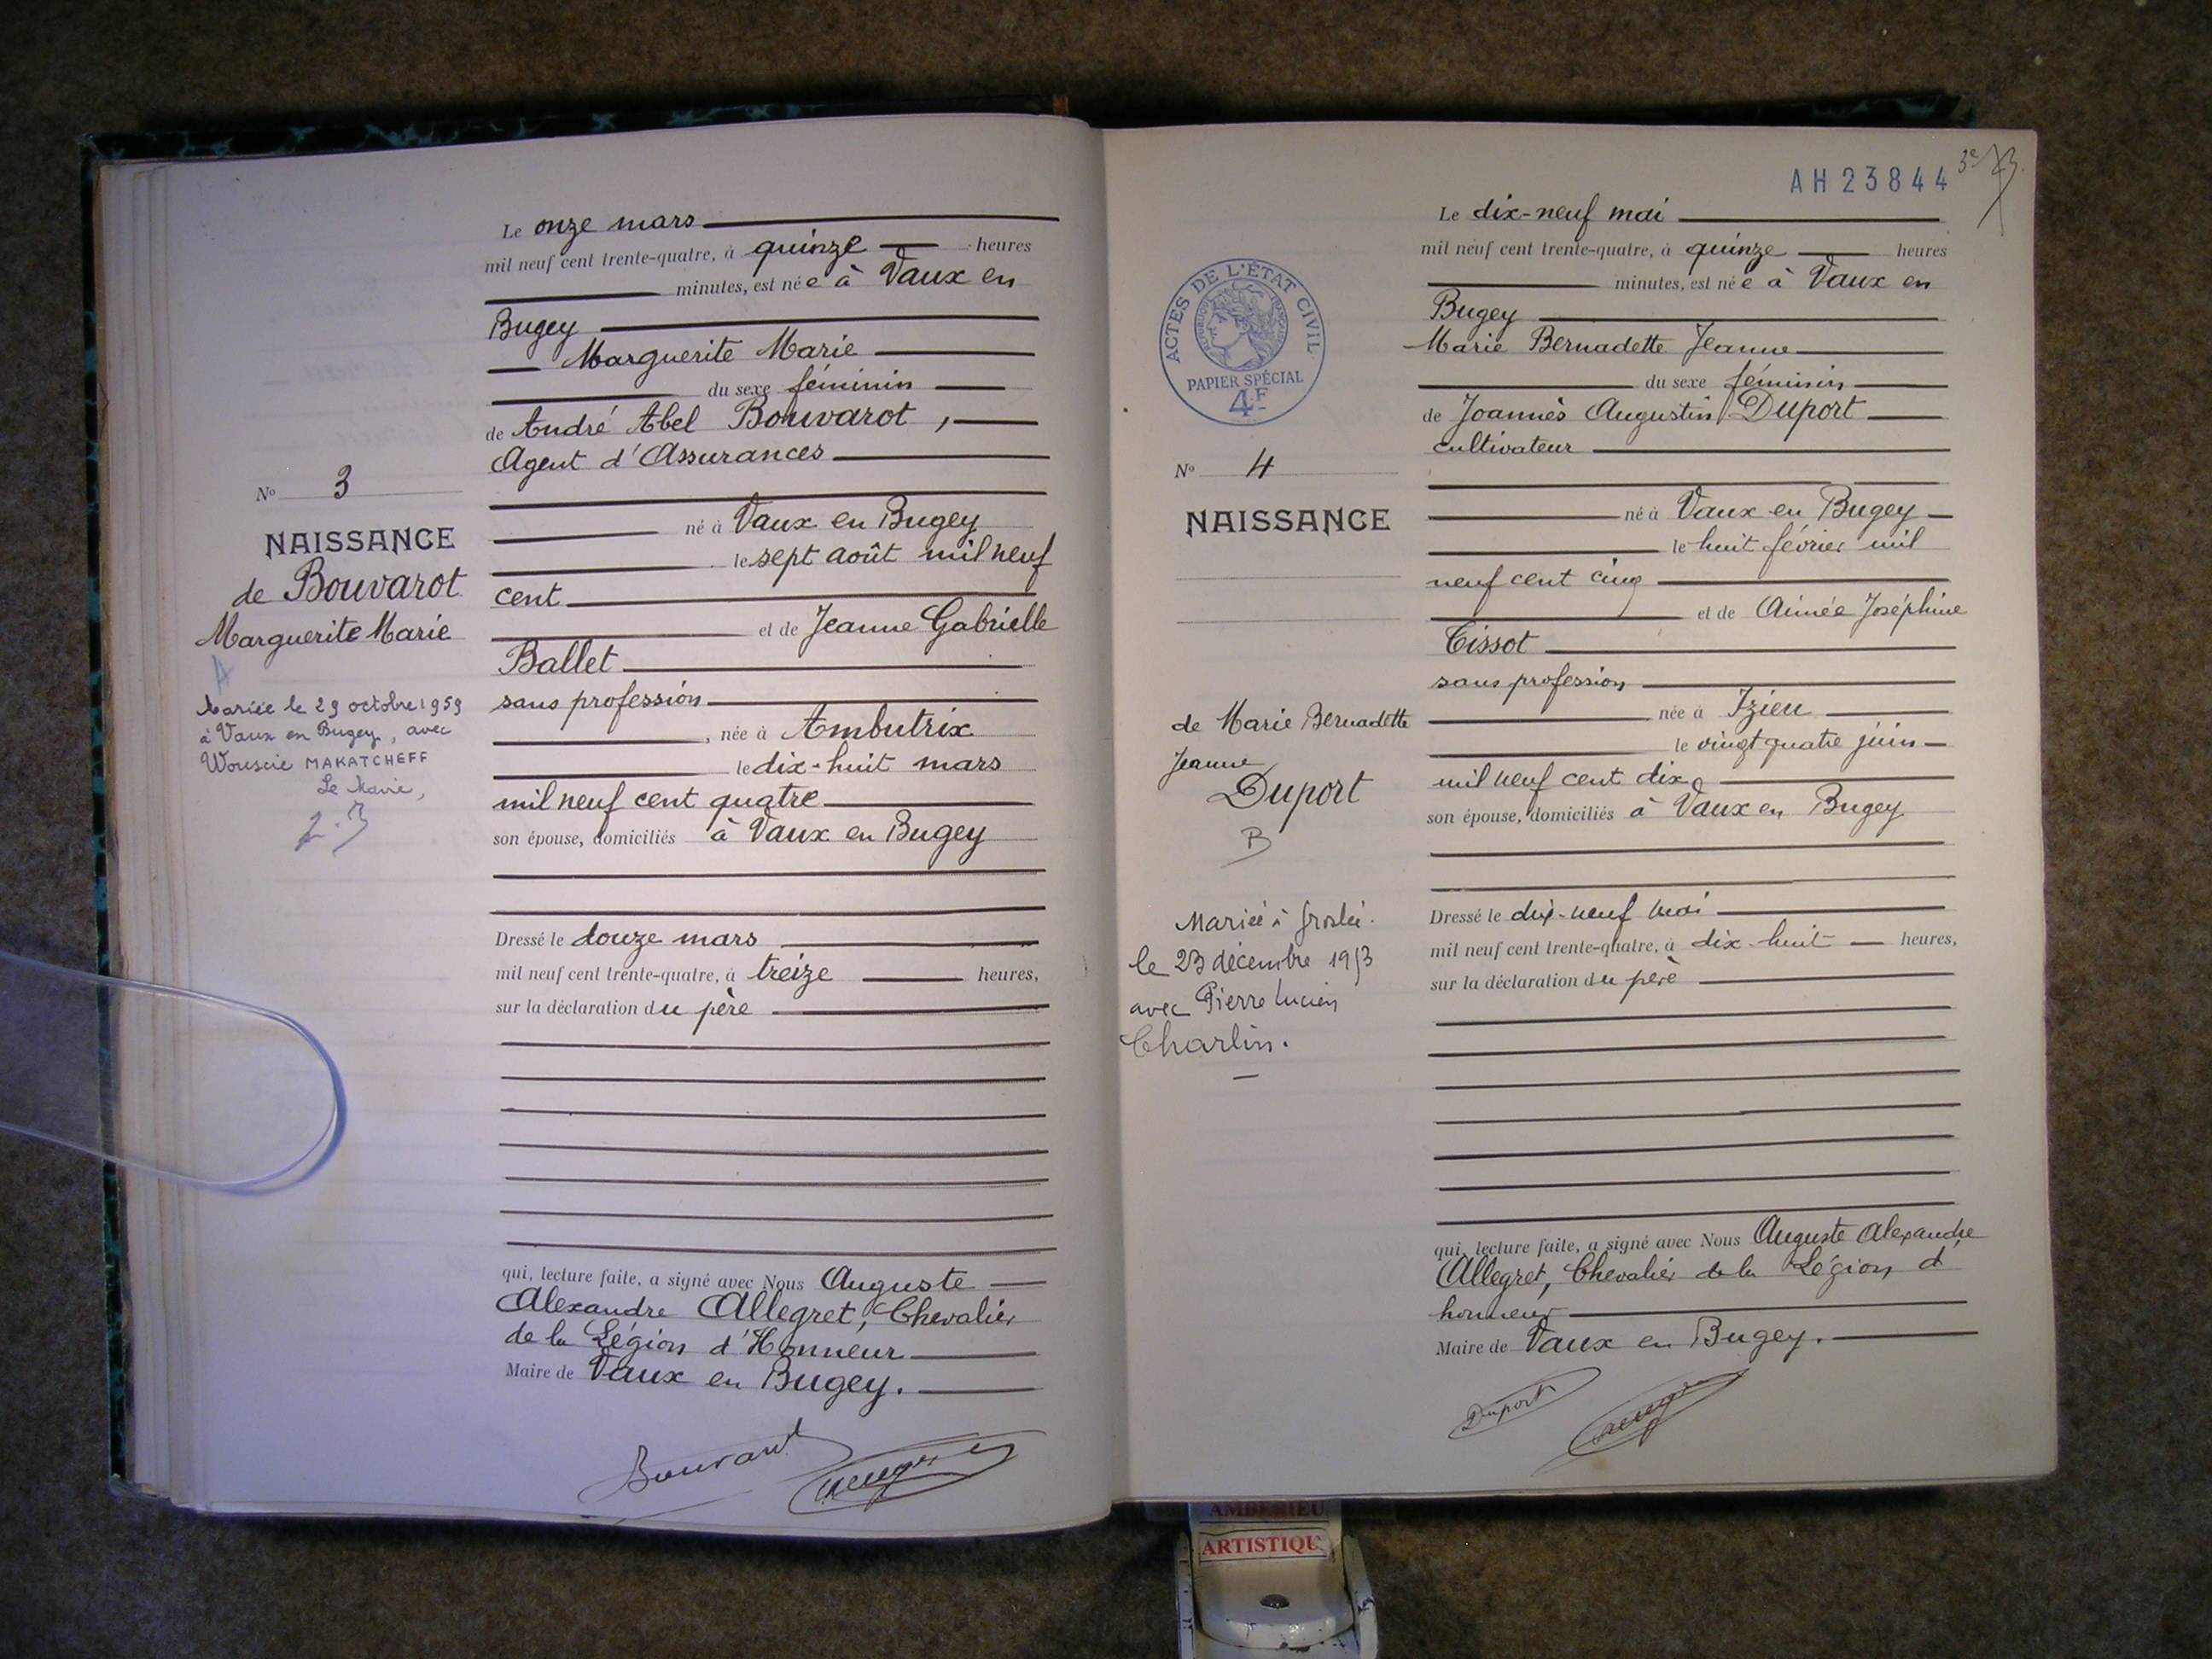 Le onze mars
mil neuf cent trente-quatre, à quinze heures
minutes, est née à Vaux en
Bugey
Marguerite Marie
du sexe féminin
de André Abel Bouvarot,
Agent d'Assurances
né à Vaux en Bugey
le sept août mil neuf
cent
et de Jeanne Gabrielle
Ballet
sans profession
, née à Ambutrix
le dix-huit mars
mil neuf cent quatre
son épouse, domiciliés à Vaux en Bugey
Dressé le douze mars
mil neuf cent trente-quatre, à treize heures,
sur la déclaration du père
qui, lecture faite, a signé avec Nous Auguste
Alexandre Allegret, Chevalier
de la Légion d'Honneur
Maire de Vaux en Bugey.
No 3
NAISSANCE
de Bouvarot
Marguerite Marie
A
Mariée le 29 octobre 1959
à Vaux en Bugey, avec
MAKATCHEFF
Le Maire,
2.3
AH 23844
ACTES DE L'ÉTAT CIVIL
PAPIER SPÉCIAL
4F
No 4
NAISSANCE
de Marie Bernadette
Jeanne
Duport
B
Mariée à Groslée.
le 23 décembre 1953
avec Pierre Lucien
Charlin.
Le dix-neuf mai
mil neuf cent trente-quatre, à quinze heures
minutes, est née à Vaux en
Bugey
Marie Bernadette Jeanne
du sexe féminin
de Joannès Augustin Duport
cultivateur
né à Vaux en Bugey
le huit février mil
neuf cent cinq
et de Aimée Joséphine
Tissot
sans profession
née à Izieu
le vingt quatre juin
mil neuf cent dix
son épouse, domiciliés à Vaux en Bugey
Dressé le dix-neuf mai
mil neuf cent trente-quatre, à dix-huit heures,
sur la déclaration du père
qui, lecture faite, a signé avec Nous Auguste Alexandre
Allegret, Chevalier de la Légion d'
honneur
Maire de Vaux en Bugey.
Duport
AMBERIEU
ARTISTIQU